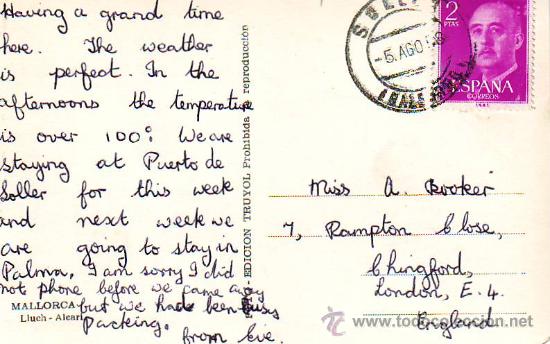 Having a grand time
here. The weather
is perfect. In the
afternoons the temperature
is over 100°. We are
staying at Puerto de
Soller for this week
and next week we
are going to stay in
Palma. I am sorry I did
not phone before we came away
but we had been busy
packing.
from Eve.
MALLORCA
Lluch - Alcari
EDICION TRUYOL Prohibida reproducción
SOLLER
-5.AGO 58
2
PTAS
ESPAÑA
CORREOS
Miss A. Booker
7, Rampton Close,
Chingford,
London, E. 4.
England
© www.todocoleccion.net